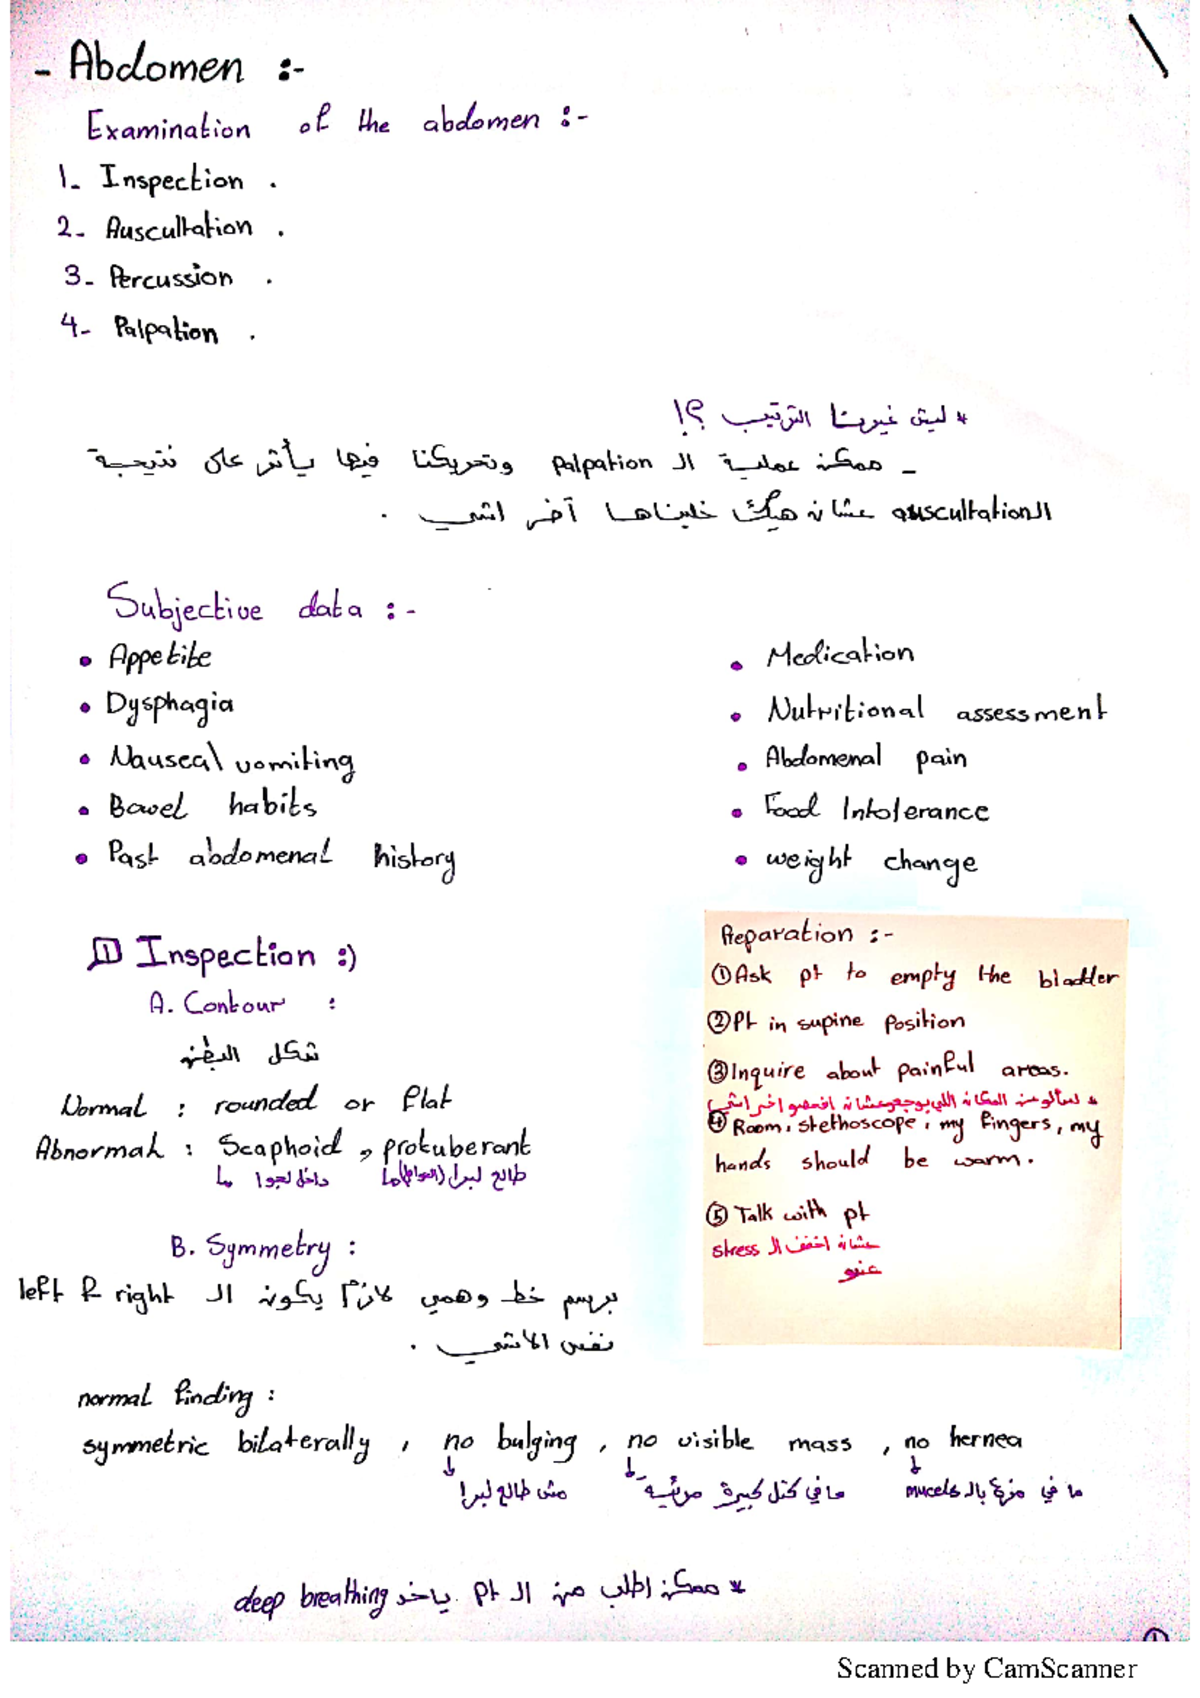 - Abdomen :-
Examination of the abdomen :-
1- Inspection .
2- Auscultation .
3- Percussion .
4- Palpation .
* ليش غيرنا الترتيب ؟!
- ممكن عملية ال palpation وتحريكنا فيها يأثر على نتيجة
ال auscultation عشان هيك خليناها آخر اشي .
Subjective data :-
• Appetite
• Dysphagia
• Nausea\ vomiting
• Bowel habits
• Past abdomenal history
• Medication
• Nutritional assessment
• Abdomenal pain
• Food Intolerance
• weight change
1 Inspection :)
A. Contour :
شكل البطن
Normal : rounded or flat
Abnormal : Scaphoid , protuberant
داخل لجوا طالع لبرا
B. Symmetry :
برسم خط وهمي لازم يكون ال left & right
نفس الاشي .
normal finding :
symmetric bilaterally , no bulging , no visible mass , no hernea
مش طالع لبرا
ما في كتل كبيرة مرئية
ما في مزع بال mucels
* ممكن اطلب من ال pt ياخد deep breathing
Preparation :-
① Ask pt to empty the bladder
② Pt in supine position
③ Inquire about painful areas.
* نسألو عن المكان اللي بوجعو عشان افحصو اخر اشي
④ Room, stethoscope, my fingers, my
hands should be warm.
⑤ Talk with pt
عشان اخفف ال stress
عنو
①
Scanned by CamScanner